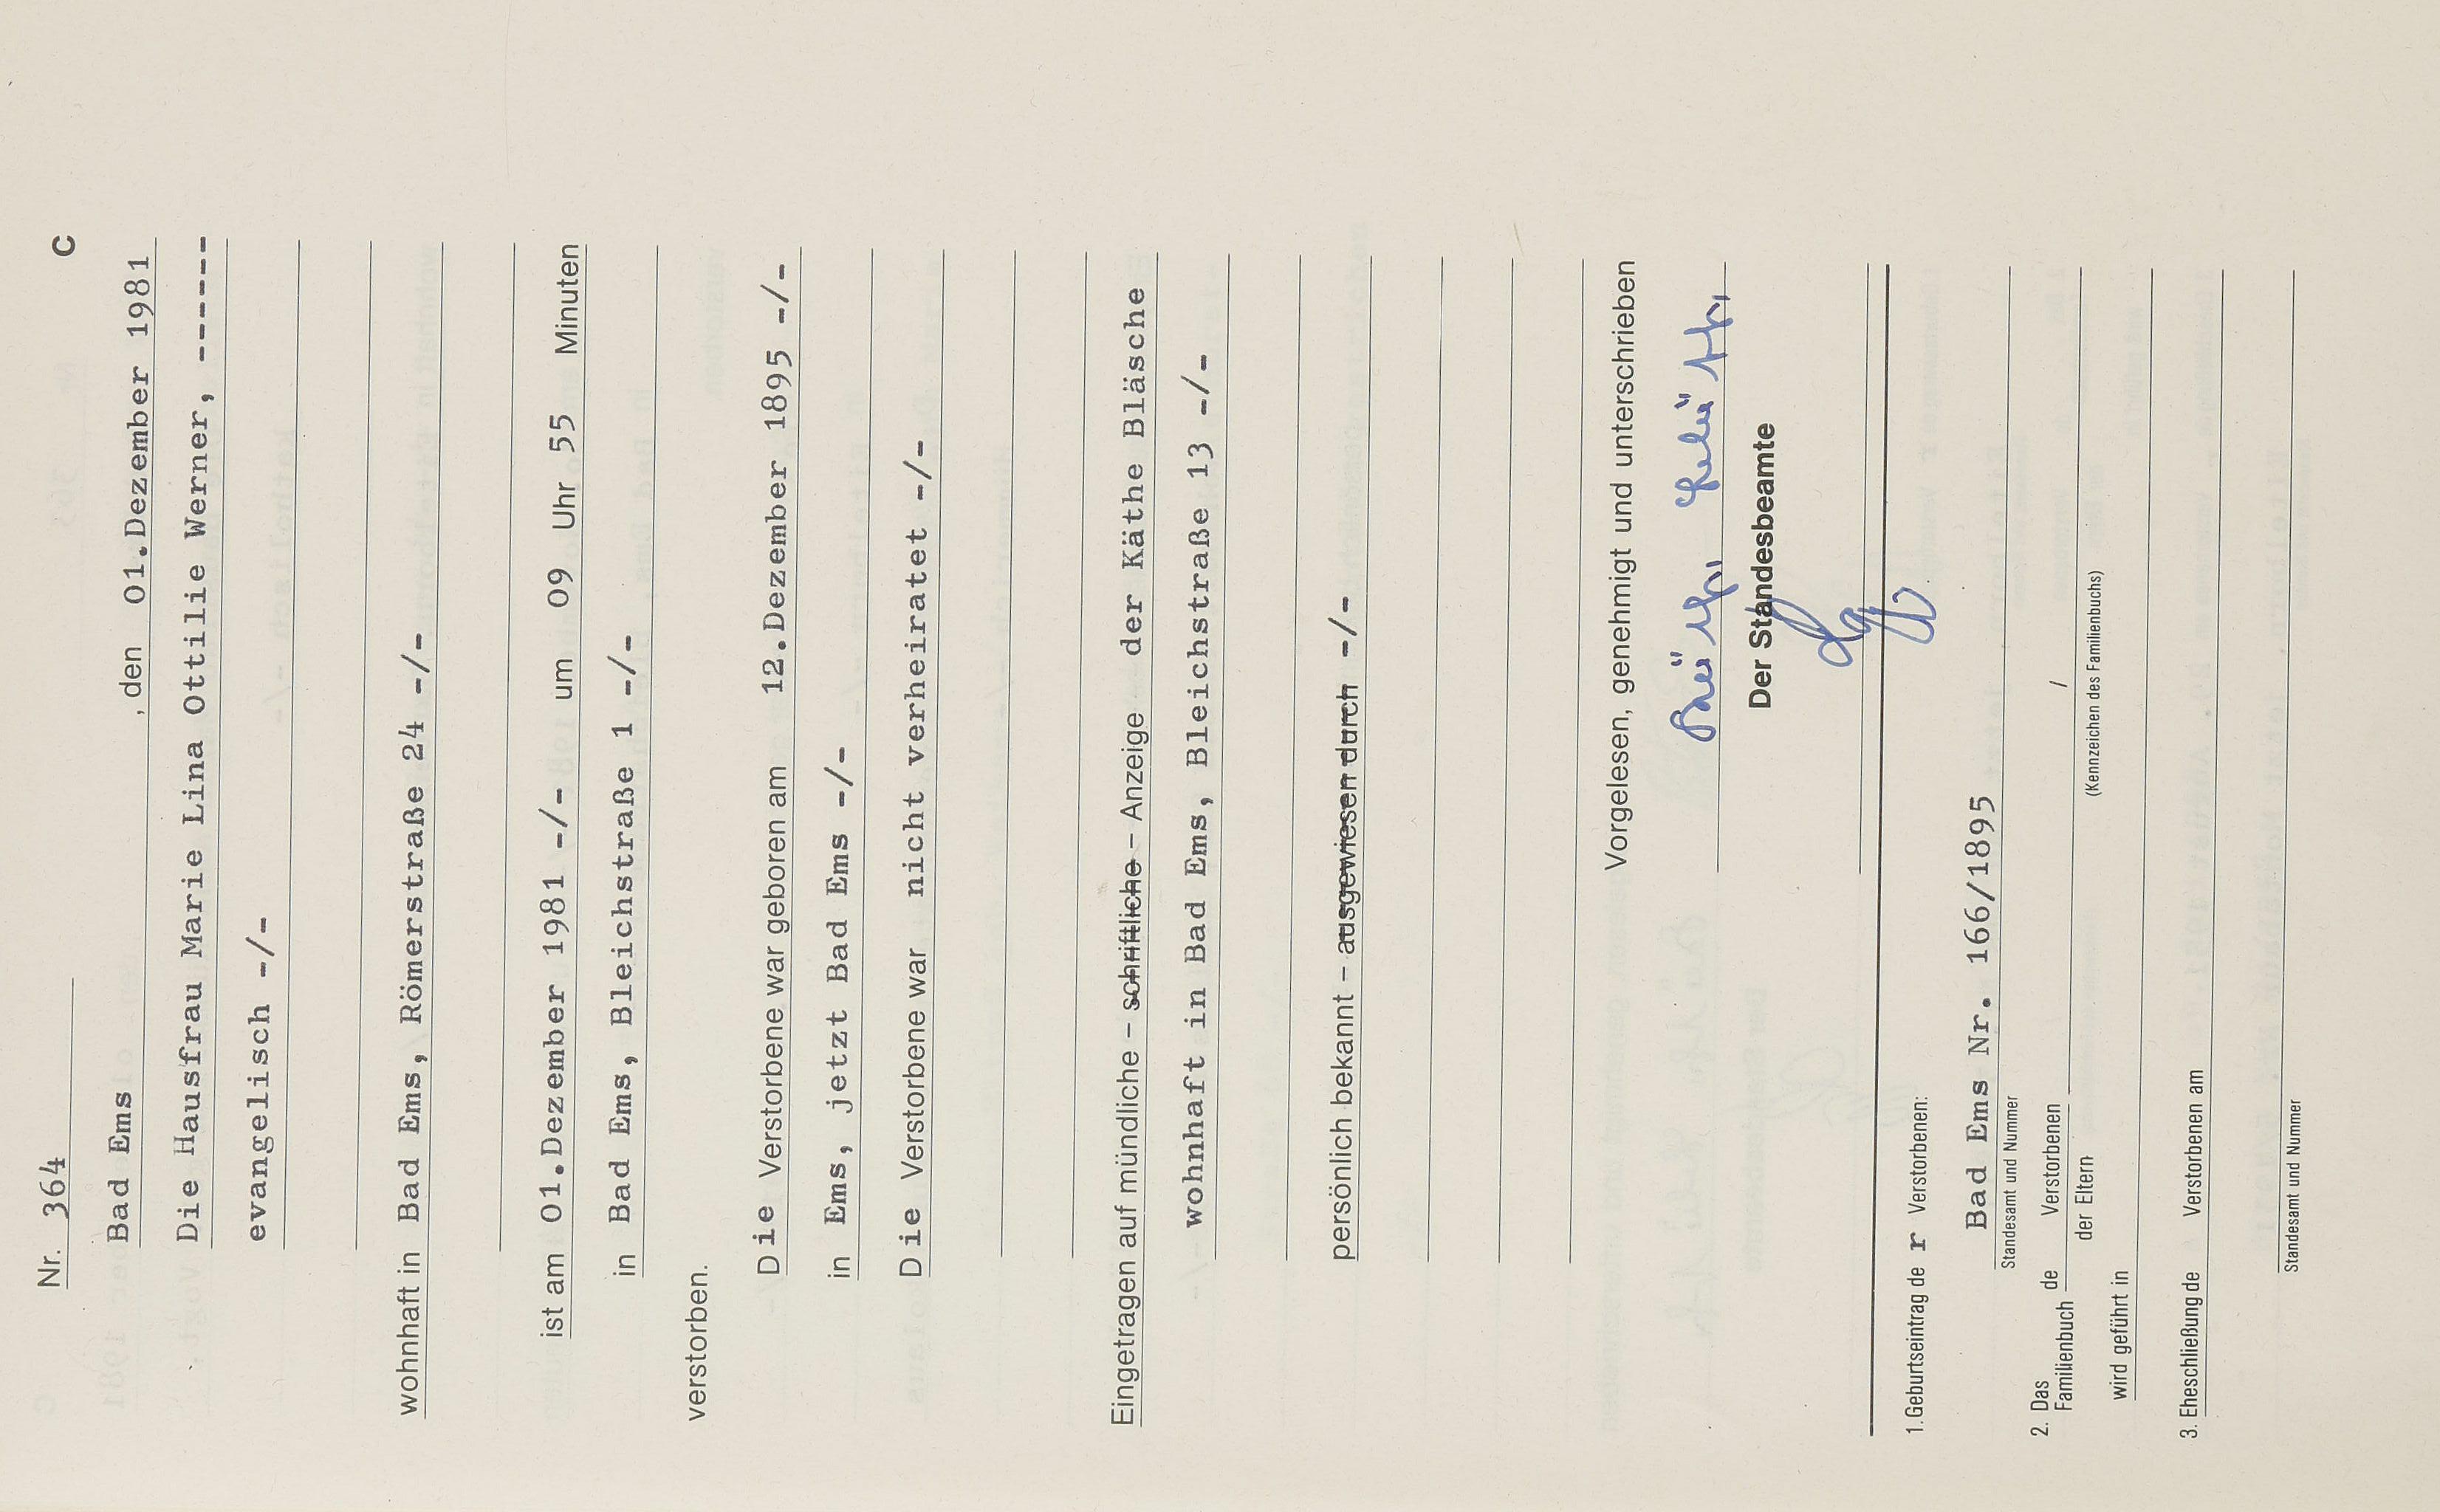 Nr. 364 C
Bad Ems , den 01.Dezember 1981
Die Hausfrau Marie Lina Ottilie Werner, ------
evangelisch -/-
wohnhaft in Bad Ems, Römerstraße 24 -/-
ist am 01.Dezember 1981 -/- um 09 Uhr 55 Minuten
in Bad Ems, Bleichstraße 1 -/-
verstorben.
Die Verstorbene war geboren am 12.Dezember 1895 -/-
in Ems, jetzt Bad Ems -/-
Die Verstorbene war nicht verheiratet -/-
Eingetragen auf mündliche – schriftliche – Anzeige der Käthe Bläsche
wohnhaft in Bad Ems, Bleichstraße 13 -/-
persönlich bekannt – ausgewiesen durch -/-
Vorgelesen, genehmigt und unterschrieben
Der Standesbeamte
1. Geburtseintrag de r Verstorbenen:
Bad Ems Nr. 166/1895
Standesamt und Nummer
2. Das Familienbuch de Verstorbenen /
der Eltern (Kennzeichen des Familienbuchs)
wird geführt in
3. Eheschließung de Verstorbenen am
Standesamt und Nummer